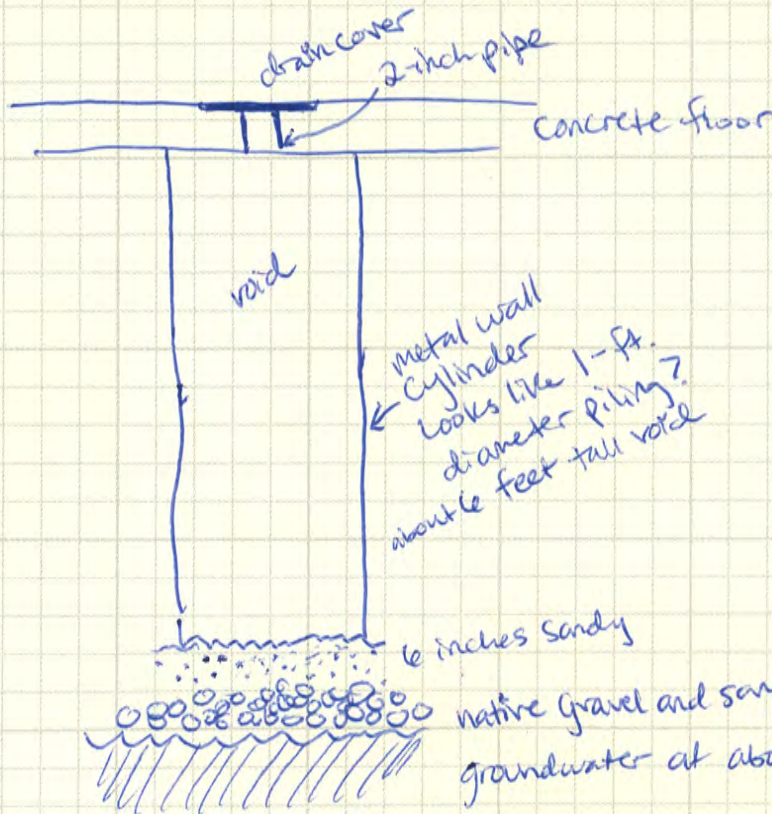 drain cover
2-inch pipe
Concrete floor
void
metal wall
cylinder
looks like 1-ft.
diameter piling?
about 6 feet tall void
6 inches sandy
native gravel and san
groundwater at abo